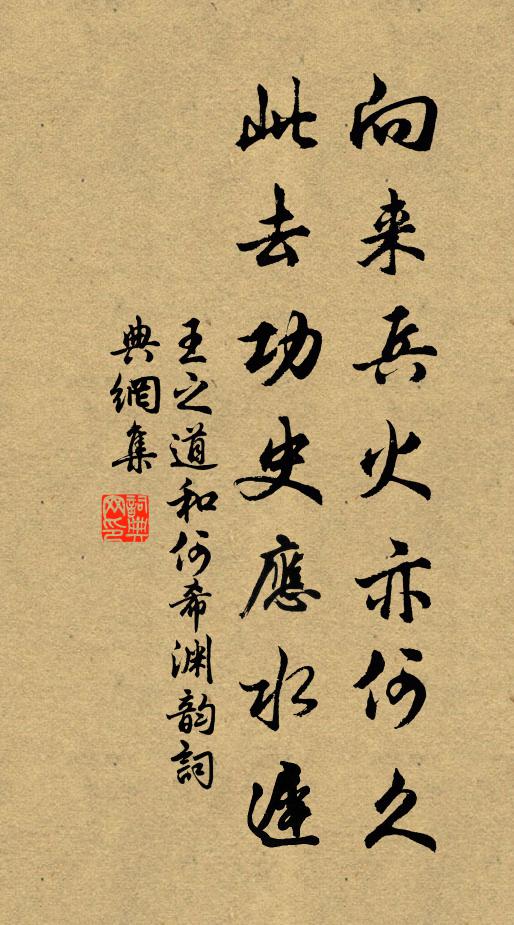 向来兵火亦何久
此去功史應水遲
王之道和何希渊韵詞
典網集
詞典
网印